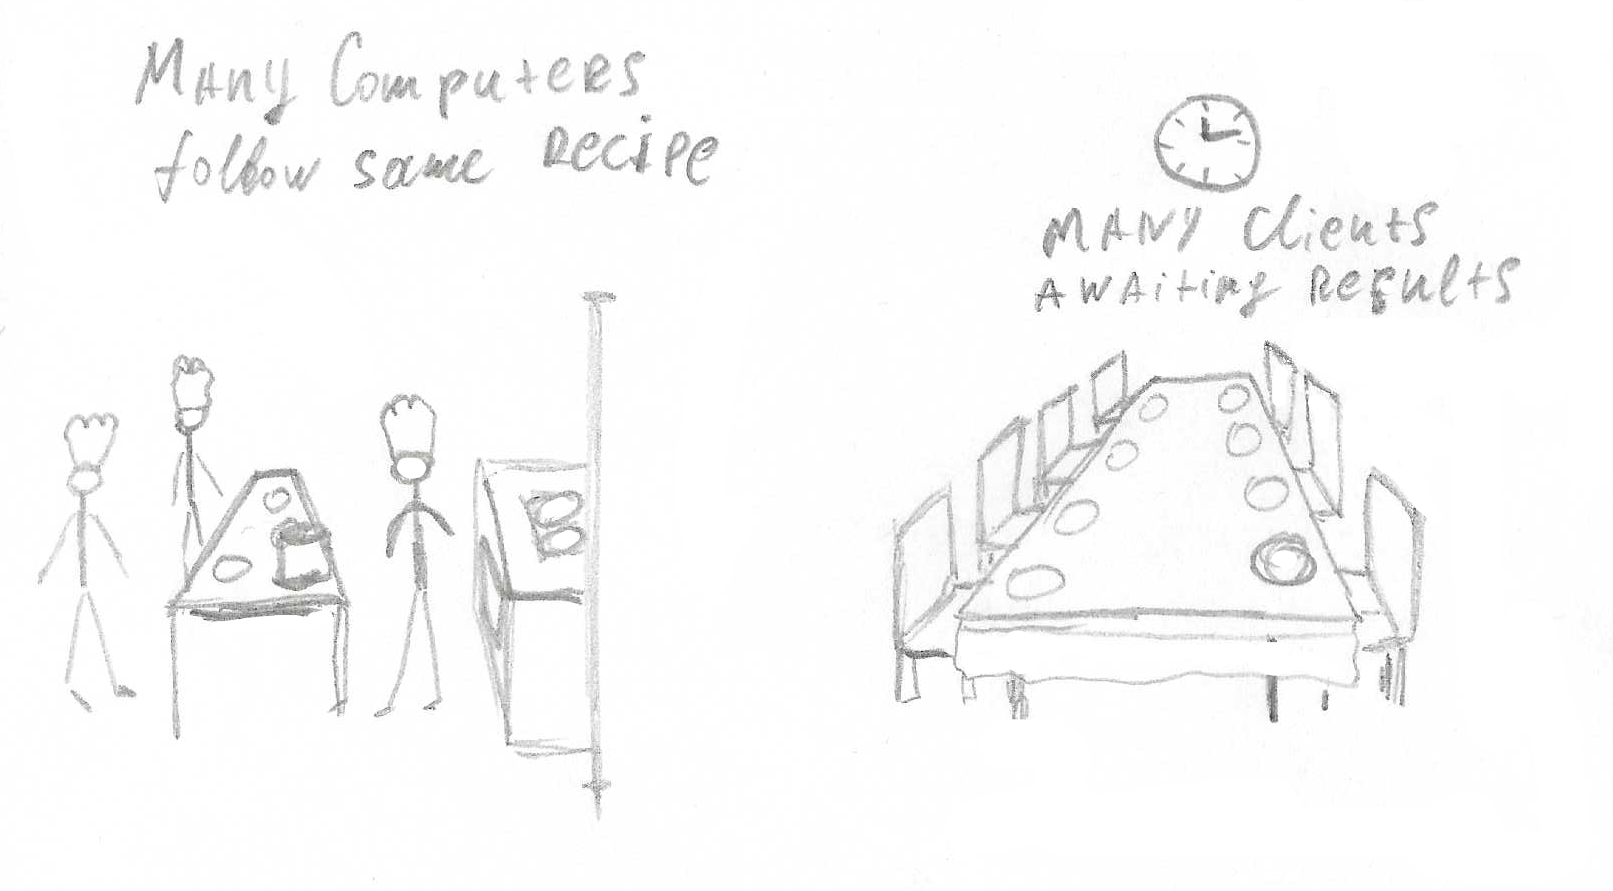 Many Computers
follow same Recipe
MANY Clients
AWAiting Results